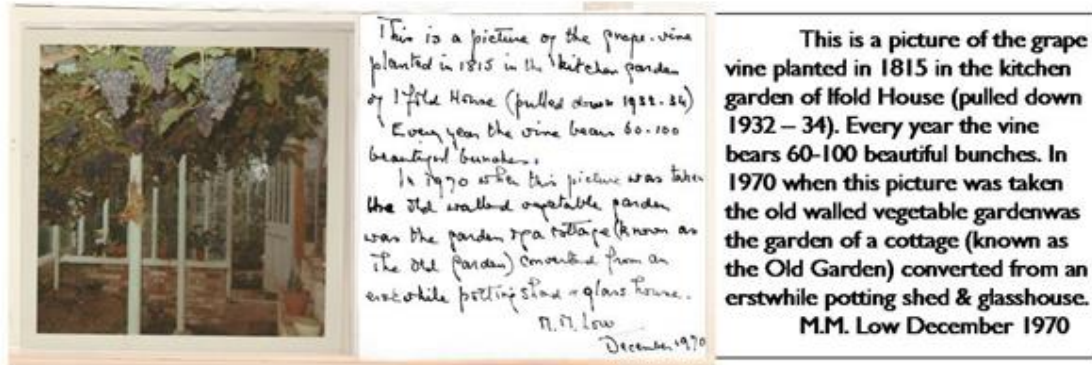 This is a picture of the grape-vine
planted in 1815 in the kitchen garden
of Ifold House (pulled down 1932-34)
Every year the vine bears 60-100
beautiful bunches.
In 1970 when this picture was taken
the old walled vegetable garden
was the garden of a cottage (known as
The Old Garden) converted from an
erstwhile potting shed & glass house.
M.M. Low
December 1970
This is a picture of the grape
vine planted in 1815 in the kitchen
garden of Ifold House (pulled down
1932 – 34). Every year the vine
bears 60-100 beautiful bunches. In
1970 when this picture was taken
the old walled vegetable gardenwas
the garden of a cottage (known as
the Old Garden) converted from an
erstwhile potting shed & glasshouse.
M.M. Low December 1970